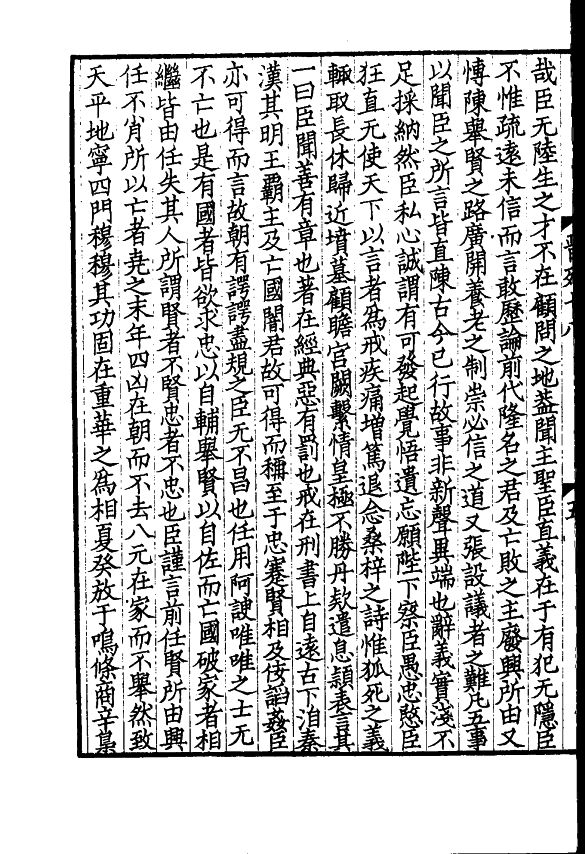 哉臣无陸生之才不在顧問之地蓋聞主聖臣直義在于有犯无隱臣
不惟疏遠未信而言敢歷論前代隆名之君及亡敗之主廢興所由又
愽陳舉賢之路廣開養老之制崇必信之道又張設議者之難凡五事
以聞臣之所言皆直陳古今已行故事非新聲異端也辭義實淺不
足採納然臣私心誠謂有可發起覺悟遺忘願陛下察臣愚忠愍臣
狂直无使天下以言者爲戒疾痛增篤退念桑梓之詩惟狐死之義
輒取長休歸近墳墓顧瞻宮闕繫情皇極不勝丹欵遣息頴表言其
一曰臣聞善有章也著在經典惡有罰也戒在刑書上自遠古下洎秦
漢其明王霸主及亡國闇君故可得而稱至于忠蹇賢相及佞謟姦臣
亦可得而言故朝有諤諤盡規之臣无不昌也任用阿諛唯唯之士无
不亡也是有國者皆欲求忠以自輔舉賢以自佐而亡國破家者相
繼皆由任失其人所謂賢者不賢忠者不忠也臣謹言前任賢所由興
任不肖所以亡者堯之末年四凶在朝而不去八元在家而不舉然致
天平地寧四門穆穆其功固在重華之爲相夏癸放于鳴條商辛梟